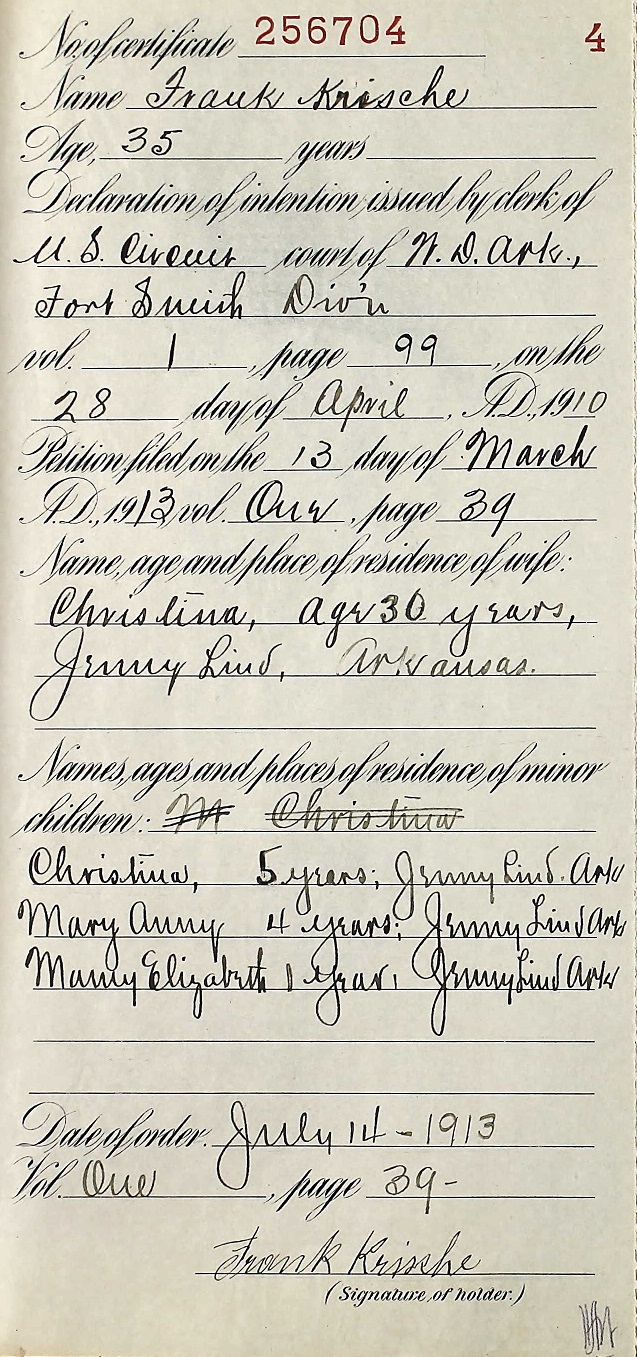 No. of certificate 256704 4
Name Frank Krische
Age, 35 years
Declaration of intention issued by clerk of
U.S. Circuit court of W. D. Ark.,
Fort Smith Div'n
vol. 1, page 99, on the
28 day of April, A.D., 1910
Petition filed on the 13 day of March
A.D., 1913 vol. One, page 39
Name, age and place of residence of wife:
Christina, age 30 years,
Jenny Lind, Arkansas.
Names, ages and places of residence of minor
children: M Christina
Christina, 5 years; Jenny Lind. Ark
Mary Anny 4 years; Jenny Lind Ark
Mamy Elizabeth 1 year, Jenny Lind Ark
Date of order. July 14 - 1913
Vol. One, page 39-
Frank Krische
(Signature of holder.)